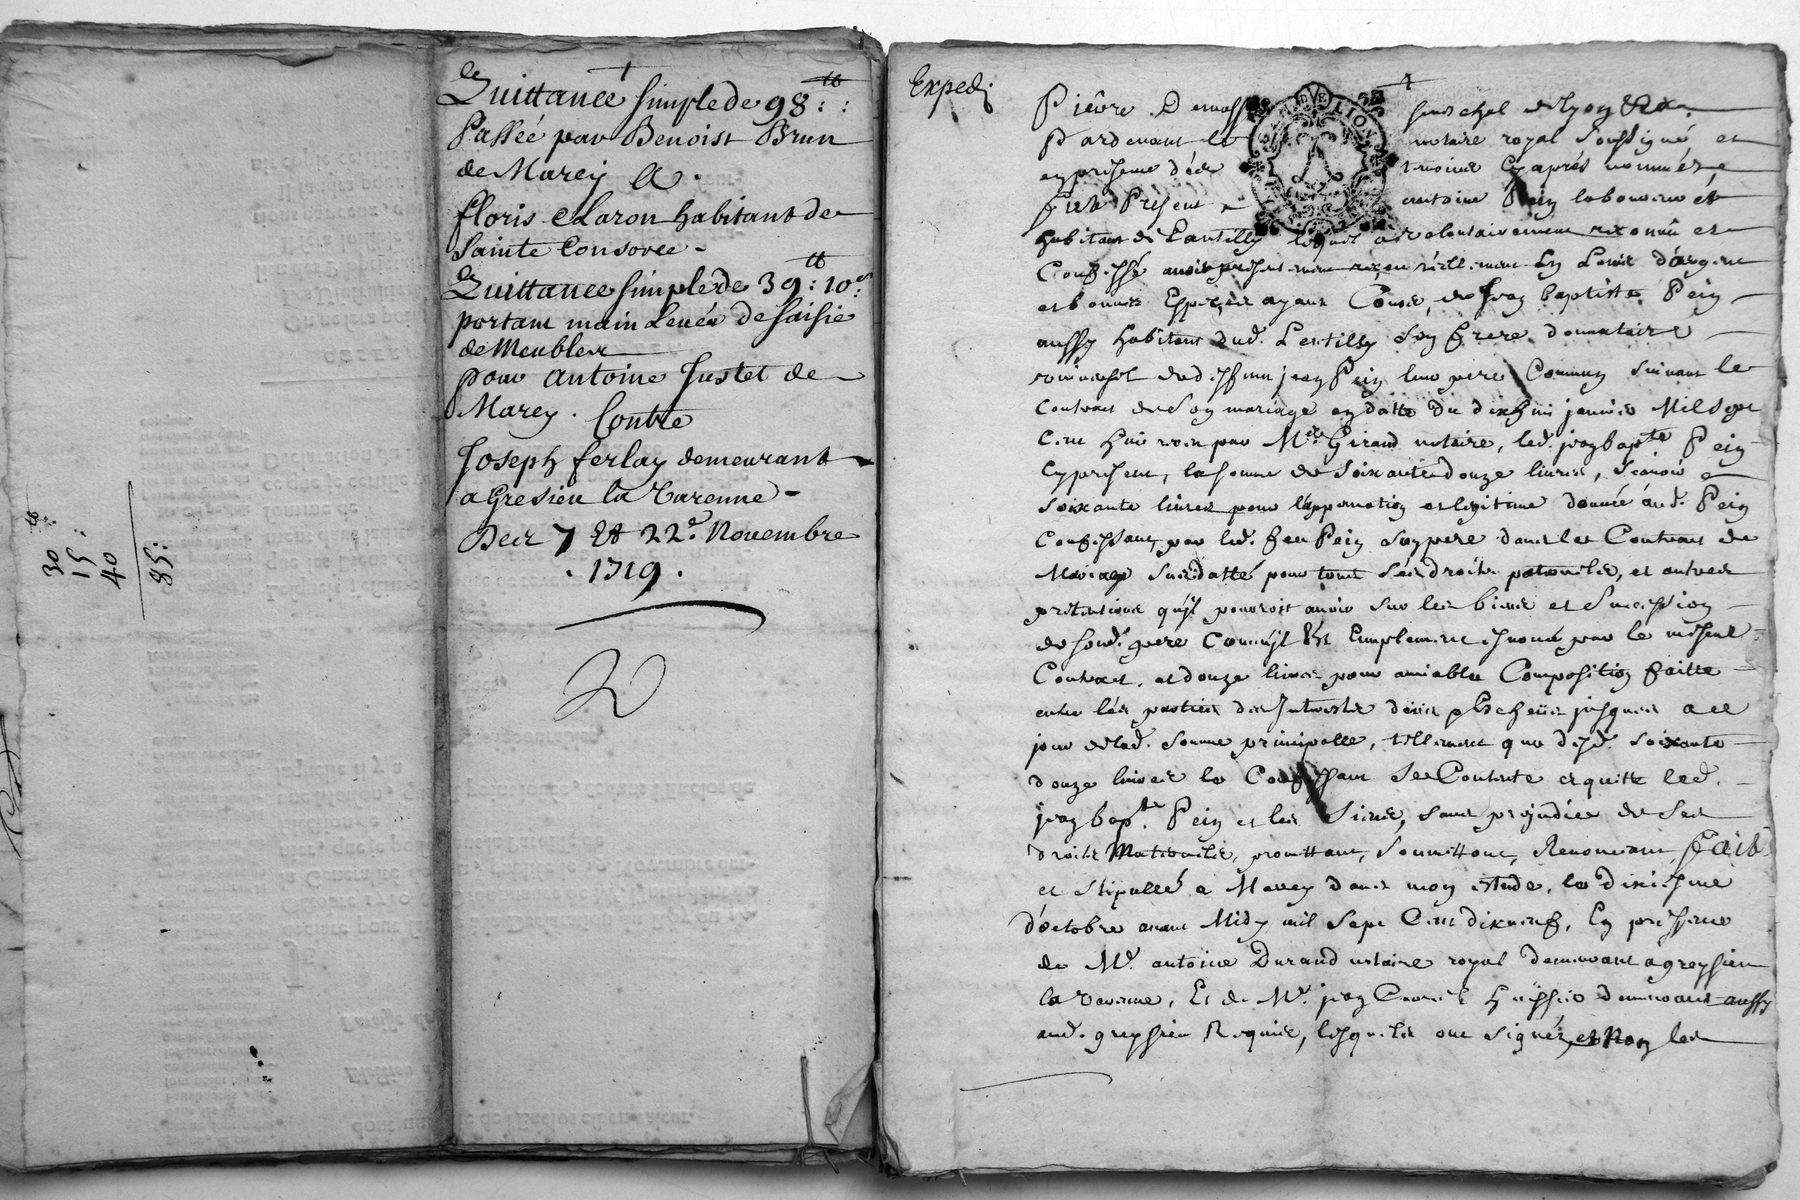 30 ₶
15 :
40
85 :
Quittance simple de 98 ₶ :
Passée par Benoist Brun
de Marcy A
floris Claron habitant de
Sainte Consorce
Quittance simple de 39 ₶ : 10 s
portant main Levée de saisie
de Meubles
pour antoine Justet de
Marcy . Contre
Joseph ferlay demeurant
a Gresieu la Varenne
Des 7 Et 22e Novembre
. 1719 .
Exped.
Pardevant le notaire royal soussigné et
en presence des temoins Cy aprés nommés,
fut Present antoine Pein laboureur et
habitant de Lantilly lequel a volontairement reconnu et
Confessé avoir presentement reçeu réellement En Louis d'argent
et bonnes Especes ayant Cours, de jean baptiste Pein
aussy habitant dud. Lentilly Son frere donnataire
universel de deffunt jean Pein leur pere Commun suivant le
Contract de Son mariage en datte du dixhuit janvier Mil Sept
Cent huit receu par Me Giraud notaire, led. jean bapte Pein
Cy present, la somme de soixante douze livres, Scavoir
Soixante livres pour l'apportion et legitime donnée aud. Pein
Confessant par led. feu Pein Son pere dans les Contract de
Mariage Susdatté pour tous Ses droits paternels, et autres
pretentions qu'il pourroit avoir sur les biens et Succession
de Sond. pere Comme il Est Emplement enoncé par le mesme
Contract, et douze livres pour amiable Composition faitte
entre les parties des Interests desus Escheus jusques a ce
jour de lad. Somme principalle, tellement que desd. soixante
douze livres le Confessant Se Contente et quitte led.
jean bapte Pein et les Siens, sans prejudice de Ses
droits Maternels, promettant, Soumettant, Renonçant, fait
et Stipullé a Marcy dans mon estude, le dixiesme
d'octobre avant Midy mil Sept Cent dixneuf, En presence
de Me antoine Durand notaire royal demeurant a greysieu
la Varenne, Et de Me jean huissier demeurant aussy
aud. greysieu Requis, lesquels ont Signés, et Non les